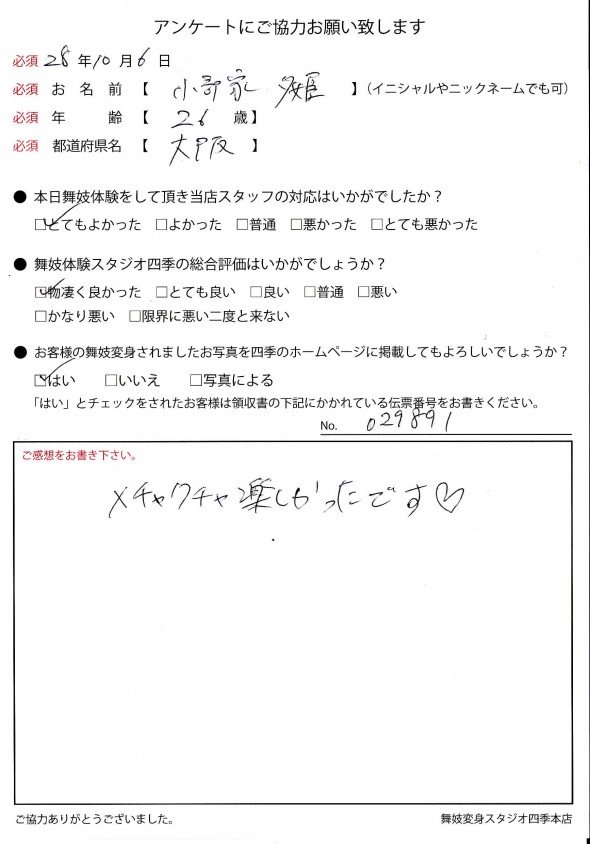 アンケートにご協力お願い致します
必須 28 年 10 月 6 日
必須 お 名 前 【 小 家 姫 】（イニシャルやニックネームでも可）
必須 年 齢 【 26 歳】
必須 都道府県名 【 大阪 】
● 本日舞妓体験をして頂き当店スタッフの対応はいかがでしたか？
☑とてもよかった □よかった □普通 □悪かった □とても悪かった
● 舞妓体験スタジオ四季の総合評価はいかがでしょうか？
☑物凄く良かった □とても良い □良い □普通 □悪い
□かなり悪い □限界に悪い二度と来ない
● お客様の舞妓変身されましたお写真を四季のホームページに掲載してもよろしいでしょうか？
☑はい □いいえ □写真による
「はい」とチェックをされたお客様は領収書の下記にかかれている伝票番号をお書きください。
No. 029891
ご感想をお書き下さい。
メチャクチャ楽しかったです♡
ご協力ありがとうございました。 舞妓変身スタジオ四季本店